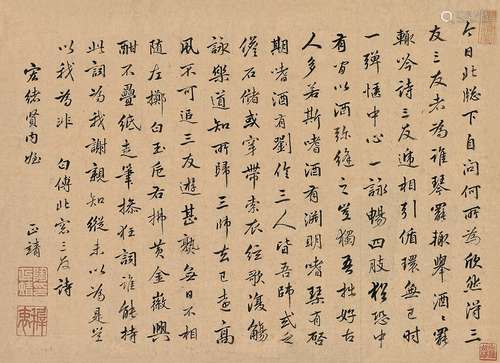 今日北牕下自問何所為欣然得三
友三友者為誰琴罷輒舉酒〻罷
輒吟詩三友遞相引循環無已時
一彈愜中心一詠暢四肢猶恐中
有間以酒弥縫之豈獨吾拙好古
人多若斯嗜酒有淵明嗜琴有啓
期嗜酒有劉伶三人皆吾師或乏
儋石儲或穿帶索衣絃歌復觴
詠樂道知所歸三師去已遠高
風不可追三友遊甚熟無日不相
隨左擲白玉卮右拂黃金徽興
酣不疊紙走筆操狂詞誰能持
此詞為我謝親知縱未以為是豈
以我為非 白傅北窓三友詩
宏緒賢内姪 正靖